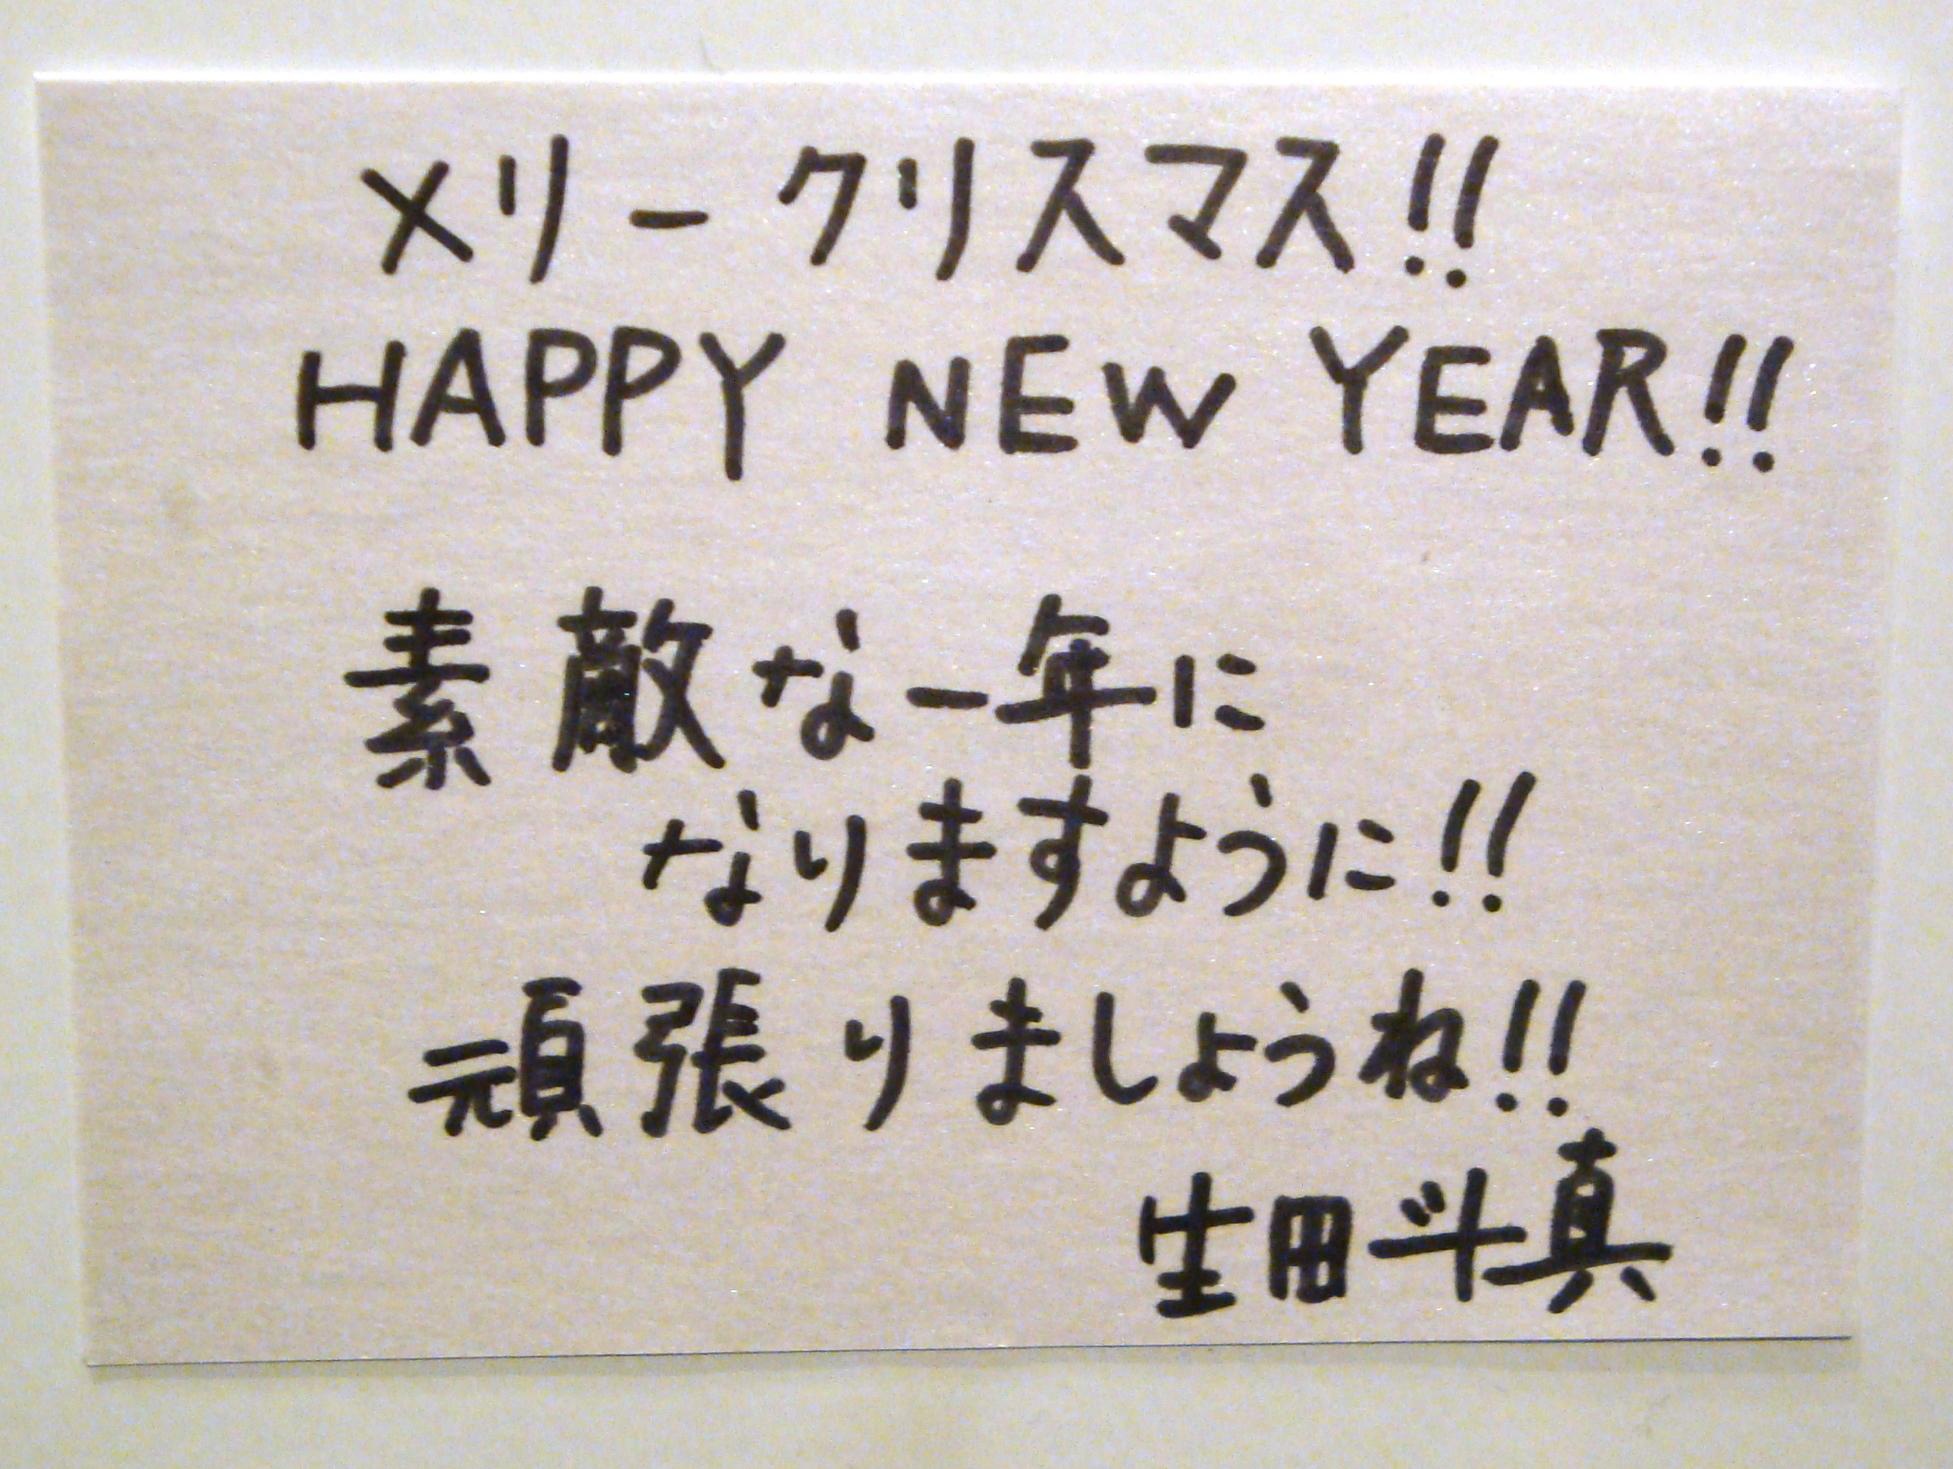 メリークリスマス!!
HAPPY NEW YEAR!!
素敵な一年に
なりますように!!
頑張りましょうね!!
生田斗真